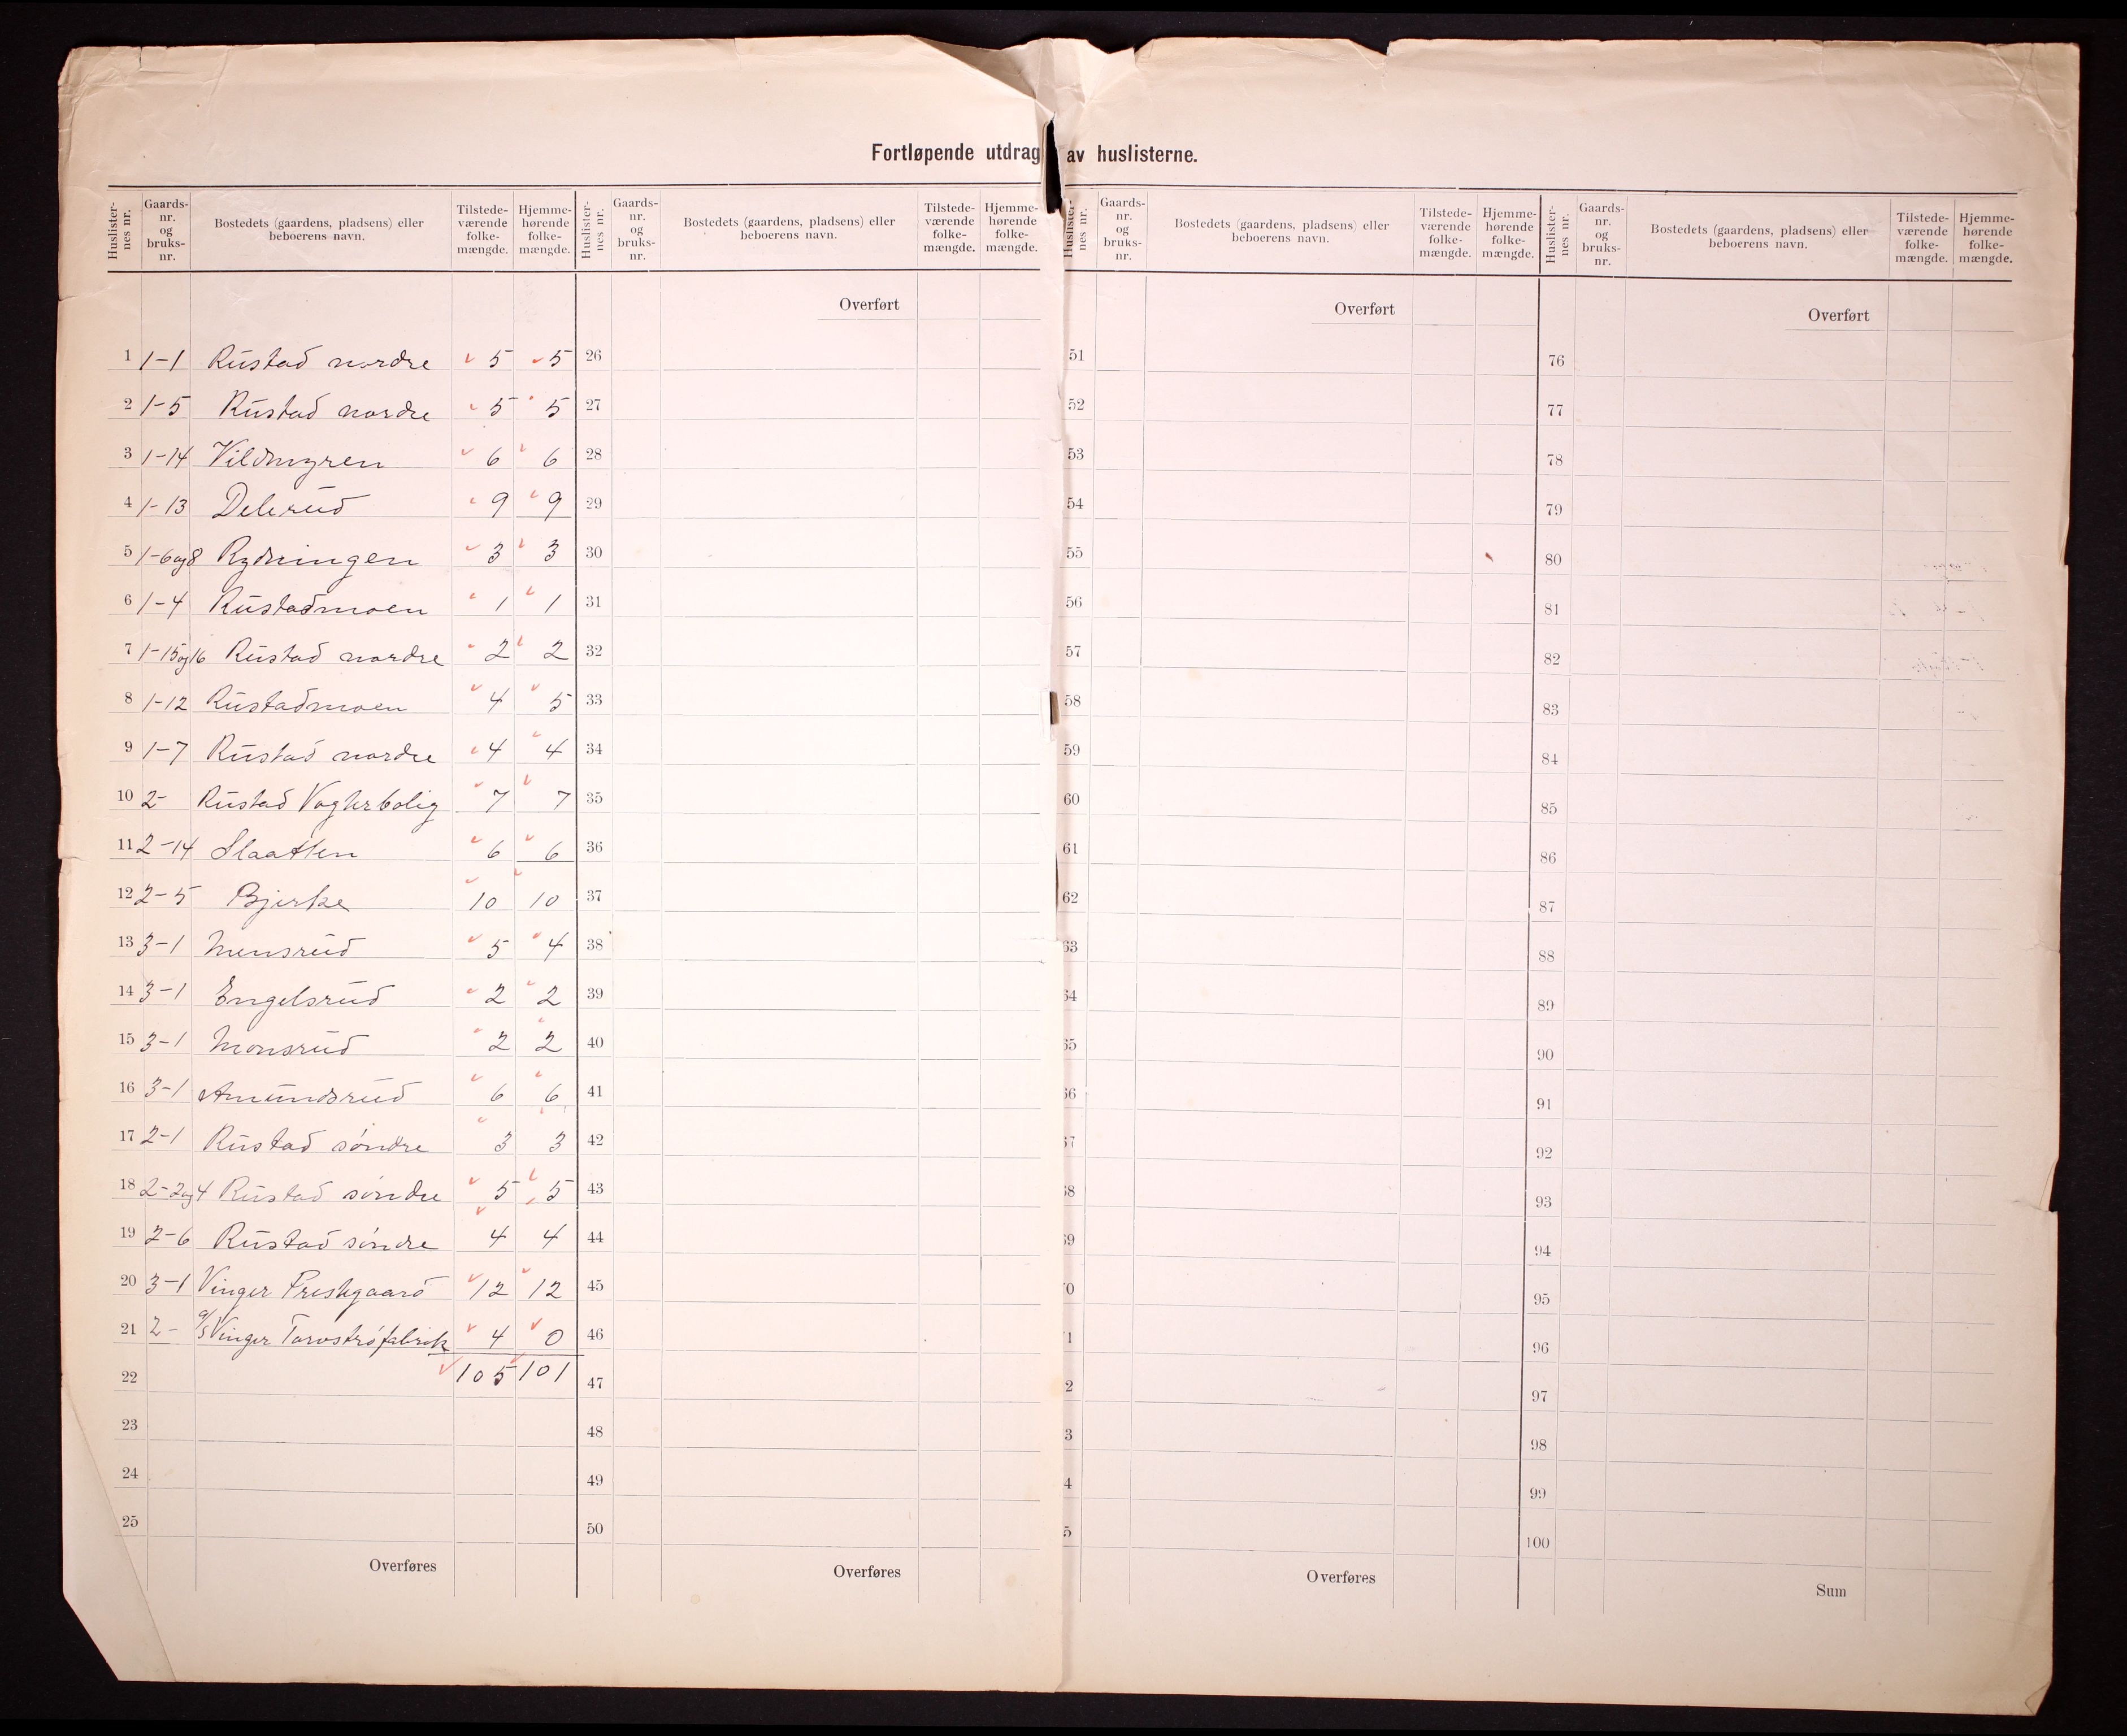 Fortløpende utdrag av huslisterne.
Huslister-nes nr. Gaards-nr. og bruks-nr. Bostedets (gaardens, pladsens) eller beboerens navn. Tilstede-værende folke-mængde. Hjemme-hørende folke-mængde.
1 1-1 Rustad nordre 5 5
2 1-5 Rustad nordre 5 5
3 1-14 Vildmyren 6 6
4 1-13 Delerud 9 9
5 1-6og8 Rydningen 3 3
6 1-4 Rustadmoen 1 1
7 1-15og16 Rustad nordre 2 2
8 1-12 Rustadmoen 4 5
9 1-7 Rustad nordre 4 4
10 2- Rustad Vogterbolig 7 7
11 2-14 Slaatten 6 6
12 2-5 Bjerke 10 10
13 3-1 Mensrud 5 4
14 3-1 Engelsrud 2 2
15 3-1 Monsrud 2 2
16 3-1 Amundsrud 6 6
17 2-1 Rustad søndre 3 3
18 2-2og4 Rustad søndre 5 5
19 2-6 Rustad søndre 4 4
20 3-1 Vinger Prestegaard 12 12
21 2- a/s Vinger Torvstrøfabrik 4 0
22 105 101
23
24
25
Overføres
Huslister-nes nr. Gaards-nr. og bruks-nr. Bostedets (gaardens, pladsens) eller beboerens navn. Tilstede-værende folke-mængde. Hjemme-hørende folke-mængde.
Overført
26
27
28
29
30
31
32
33
34
35
36
37
38
39
40
41
42
43
44
45
46
47
48
49
50
Overføres
Huslister-nes nr. Gaards-nr. og bruks-nr. Bostedets (gaardens, pladsens) eller beboerens navn. Tilstede-værende folke-mængde. Hjemme-hørende folke-mængde.
Overført
51
52
53
54
55
56
57
58
59
60
61
62
63
64
65
66
67
68
69
70
71
72
73
74
75
Overføres
Huslister-nes nr. Gaards-nr. og bruks-nr. Bostedets (gaardens, pladsens) eller beboerens navn. Tilstede-værende folke-mængde. Hjemme-hørende folke-mængde.
Overført
76
77
78
79
80
81
82
83
84
85
86
87
88
89
90
91
92
93
94
95
96
97
98
99
100
Sum